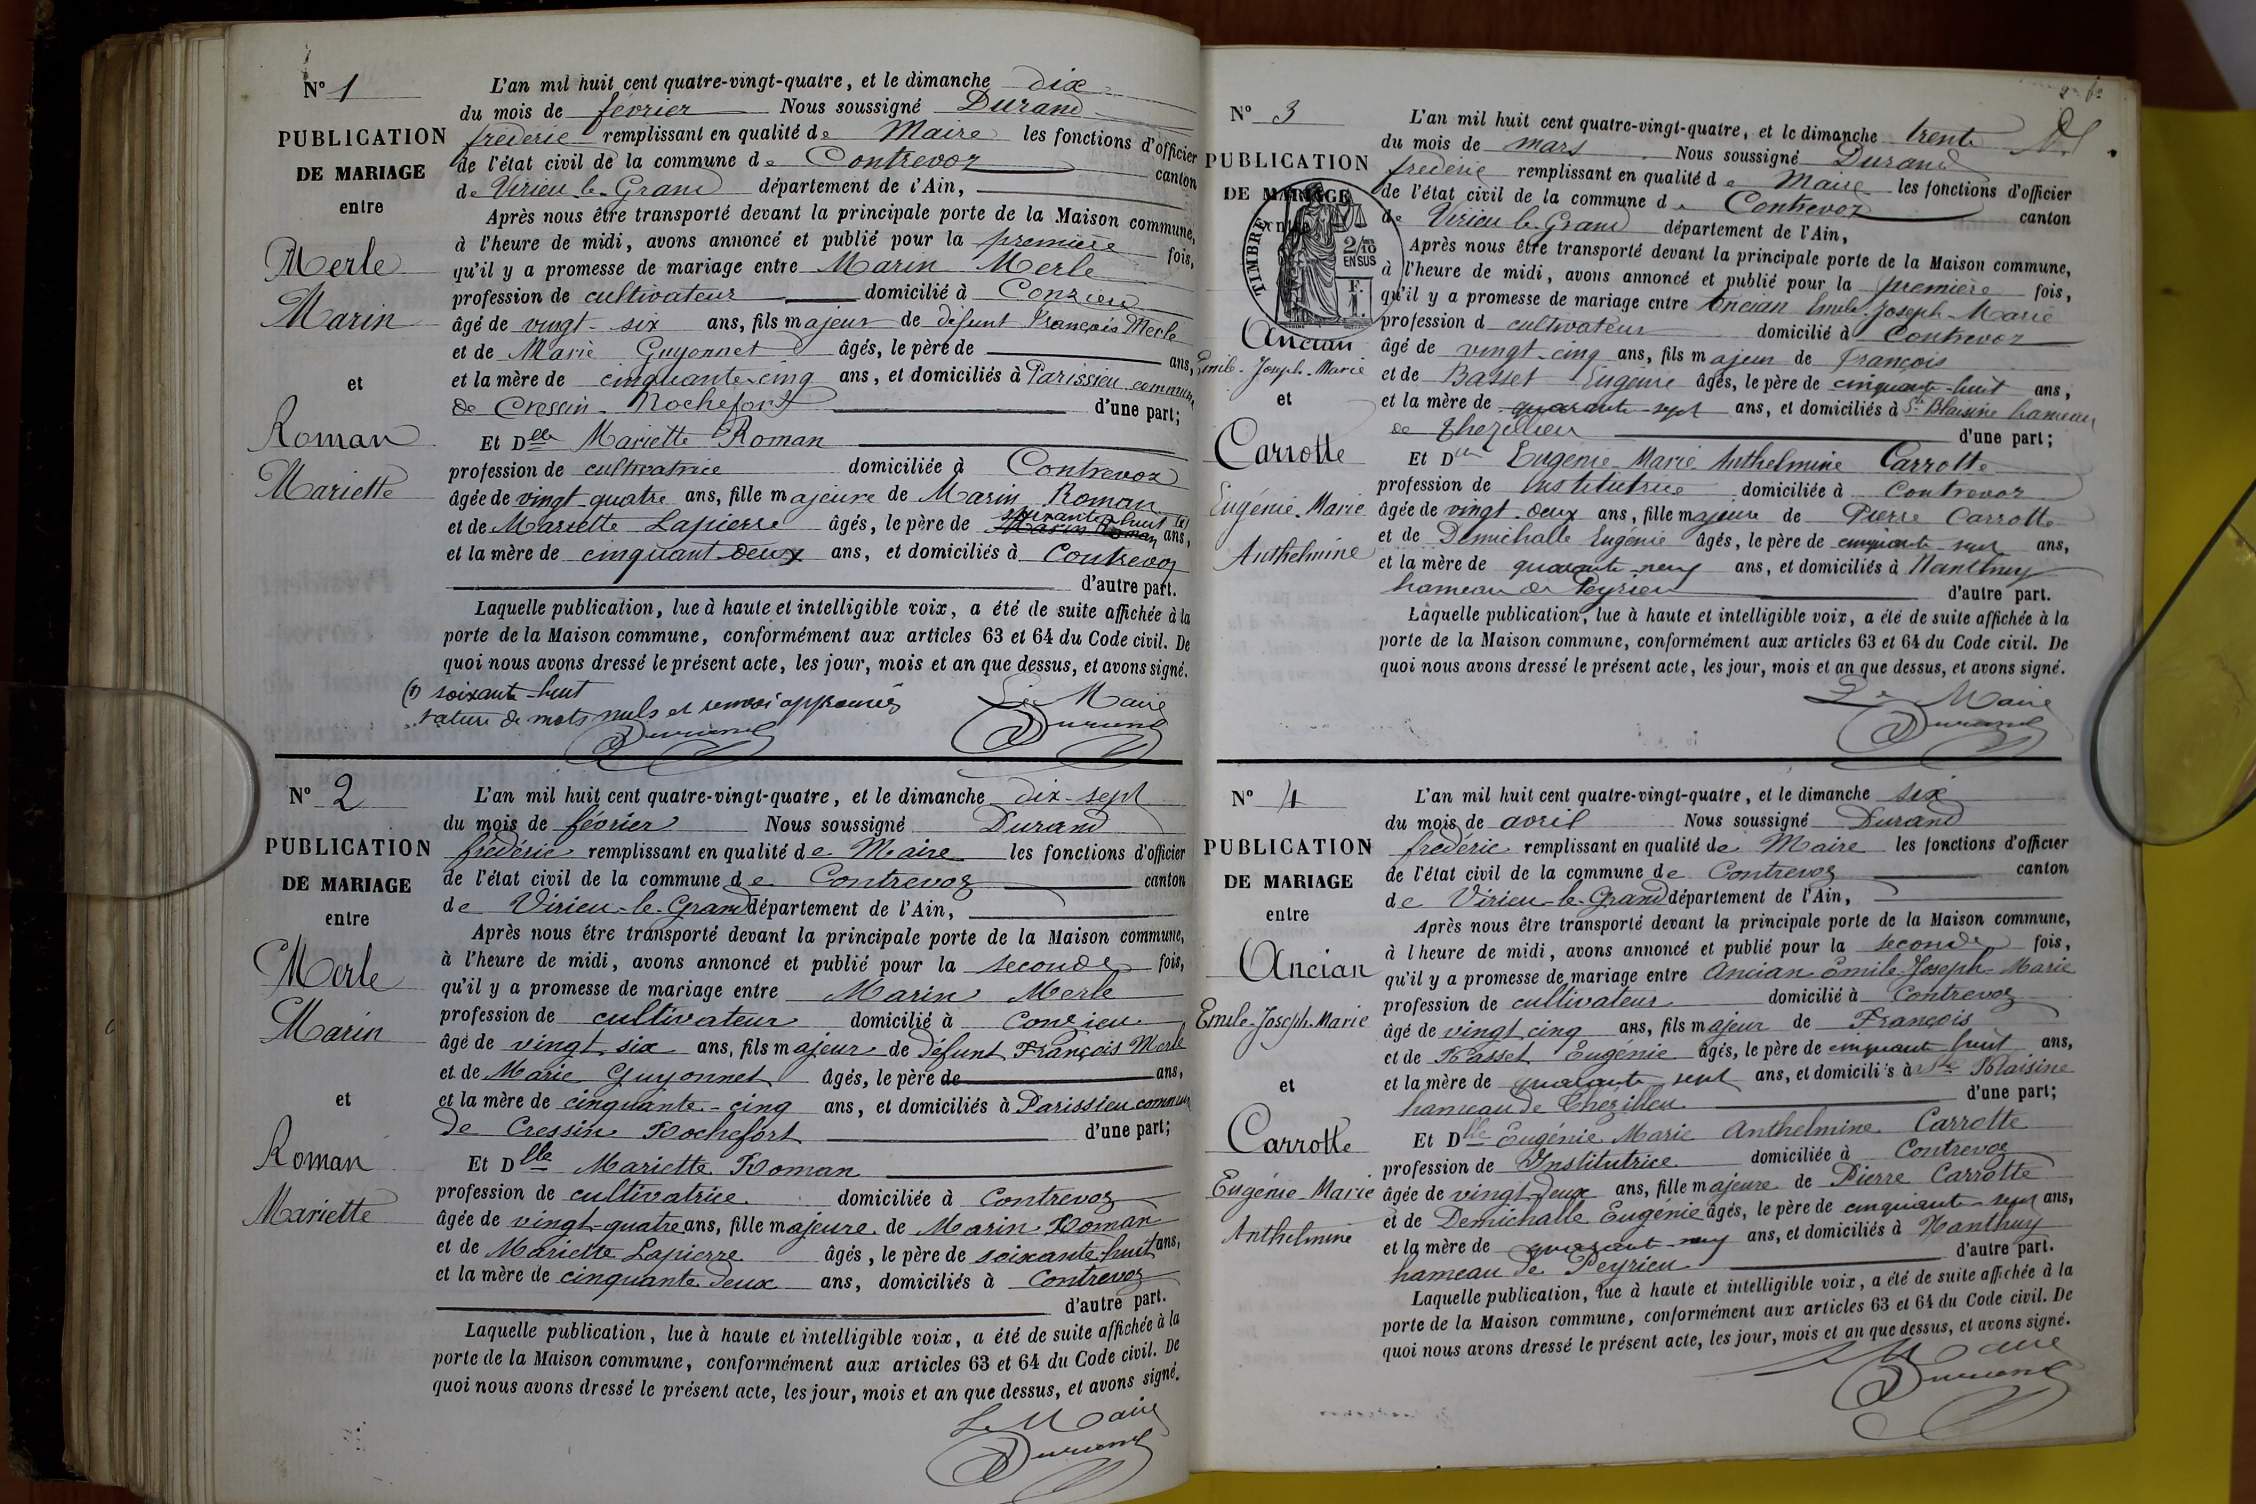 N° 1
PUBLICATION
DE MARIAGE
entre
Merle
Marin
et
Roman
Mariette
L'an mil huit cent quatre-vingt-quatre, et le dimanche dix
du mois de février Nous soussigné Durand
frédéric remplissant en qualité de Maire les fonctions d'officier
de l'état civil de la commune de Contrevoz canton
de Virieu-le-Grand département de l'Ain,
Après nous être transporté devant la principale porte de la Maison commune,
à l'heure de midi, avons annoncé et publié pour la première fois,
qu'il y a promesse de mariage entre Marin Merle
profession de cultivateur domicilié à Conzieu
âgé de vingt-six ans, fils majeur de défunt François Merle
et de Marie Guyonnet âgés, le père de ans,
et la mère de cinquante-cinq ans, et domiciliés à Parissieu commune
de Cressin-Rochefort d'une part;
Et Dlle Mariette Roman
profession de cultivatrice domiciliée à Contrevoz
âgée de vingt-quatre ans, fille majeure de Marin Roman
et de Mariette Lapierre âgés, le père de soixante-huit (1) Marin Roman ans,
et la mère de cinquant-deux ans, et domiciliés à Contrevoz
d'autre part.
Laquelle publication, lue à haute et intelligible voix, a été de suite affichée à la
porte de la Maison commune, conformément aux articles 63 et 64 du Code civil. De
quoi nous avons dressé le présent acte, les jour, mois et an que dessus, et avons signé.
(1) soixante-huit
rature de mots nuls et renvoi approuvés
Le Maire
Durand
Durand
N° 2
PUBLICATION
DE MARIAGE
entre
Merle
Marin
et
Roman
Mariette
L'an mil huit cent quatre-vingt-quatre, et le dimanche dix-sept
du mois de février Nous soussigné Durand
frédéric remplissant en qualité de Maire les fonctions d'officier
de l'état civil de la commune de Contrevoz canton
de Virieu-le-Grand département de l'Ain,
Après nous être transporté devant la principale porte de la Maison commune,
à l'heure de midi, avons annoncé et publié pour la seconde fois,
qu'il y a promesse de mariage entre Marin Merle
profession de cultivateur domicilié à Conzieu
âgé de vingt six ans, fils majeur de défunt François Merle
et de Marie Guyonnet âgés, le père de ans,
et la mère de cinquante-cinq ans, et domiciliés à Parissieu commune
de Cressin Rochefort d'une part;
Et Dlle Mariette Roman
profession de cultivatrice domiciliée à Contrevoz
âgée de vingt-quatre ans, fille majeure de Marin Roman
et de Mariette Lapierre âgés, le père de soixante-huit ans,
et la mère de cinquante deux ans, domiciliés à Contrevoz
d'autre part.
Laquelle publication, lue à haute et intelligible voix, a été de suite affichée à la
porte de la Maison commune, conformément aux articles 63 et 64 du Code civil. De
quoi nous avons dressé le présent acte, les jour, mois et an que dessus, et avons signé.
Le Maire
Durand
N° 3
PUBLICATION
DE MARIAGE
entre
TIMBRE
2/10
EN SUS
Ancian
Emile-Joseph-Marie
et
Carrotte
Eugénie-Marie
Anthelmine
L'an mil huit cent quatre-vingt-quatre, et le dimanche trente
du mois de mars Nous soussigné Durand
frédéric remplissant en qualité de Maire les fonctions d'officier
de l'état civil de la commune de Contrevoz canton
de Virieu-le-Grand département de l'Ain,
Après nous être transporté devant la principale porte de la Maison commune,
à l'heure de midi, avons annoncé et publié pour la première fois,
qu'il y a promesse de mariage entre Ancian Emile-Joseph-Marie
profession d cultivateur domicilié à Contrevoz
âgé de vingt-cinq ans, fils majeur de François
et de Basset Eugénie âgés, le père de cinquante-huit ans,
et la mère de quarante-sept ans, et domiciliés à Ste Blaisine hameau
de Thezillieu d'une part;
Et Dlle Eugénie Marie Anthelmine Carrotte
profession de Institutrice domiciliée à Contrevoz
âgée de vingt-deux ans, fille majeure de Pierre Carrotte
et de Demichalle Eugénie âgés, le père de cinquante-sept ans,
et la mère de quarante-neuf ans, et domiciliés à Nanthuy
hameau de Peyrieu d'autre part.
Laquelle publication, lue à haute et intelligible voix, a été de suite affichée à la
porte de la Maison commune, conformément aux articles 63 et 64 du Code civil. De
quoi nous avons dressé le présent acte, les jour, mois et an que dessus, et avons signé.
Le Maire
Durand
N° 4
PUBLICATION
DE MARIAGE
entre
Ancian
Emile-Joseph-Marie
et
Carrotte
Eugénie-Marie
Anthelmine
L'an mil huit cent quatre-vingt-quatre, et le dimanche six
du mois de avril Nous soussigné Durand
frédéric remplissant en qualité de Maire les fonctions d'officier
de l'état civil de la commune de Contrevoz canton
de Virieu-le-Grand département de l'Ain,
Après nous être transporté devant la principale porte de la Maison commune,
à l'heure de midi, avons annoncé et publié pour la seconde fois,
qu'il y a promesse de mariage entre Ancian Emile-Joseph-Marie
profession de cultivateur domicilié à Contrevoz
âgé de vingt cinq ans, fils majeur de François
et de Basset Eugénie âgés, le père de cinquante huit ans,
et la mère de quarante sept ans, et domiciliés à Ste Blaisine
hameau de Thezillieu d'une part;
Et Dlle Eugénie Marie Anthelmine Carrotte
profession de Institutrice domiciliée à Contrevoz
âgée de vingt-deux ans, fille majeure de Pierre Carrotte
et de Demichalle Eugénie âgés, le père de cinquante-sept ans,
et la mère de quarante-neuf ans, et domiciliés à Nanthuy
hameau de Peyrieu d'autre part.
Laquelle publication, lue à haute et intelligible voix, a été de suite affichée à la
porte de la Maison commune, conformément aux articles 63 et 64 du Code civil. De
quoi nous avons dressé le présent acte, les jour, mois et an que dessus, et avons signé.
Le Maire
Durand